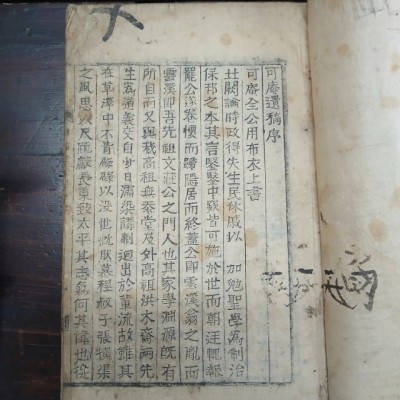 可庵遺稿序
可庵全公用布衣上書
北闕論時政得失生民休戚以 加勉聖學爲制治
保邦之本其言鑿鑿中窾皆可施於世而朝廷輒報
罷公遂卷懷而歸隱居而終蓋公卽雲溪翁之胤而
雲溪卽吾先祖文莊公之門人也其家學淵源旣有
所自而又與我高祖 黍堂及外高祖洪木齋兩先
生爲道義交自少日濡染講劘迥出於輩流故雖其
在草澤中不肯碌碌以沒世慨然慕程叔子張橫渠
之風思以尺疏 長策致太平其志氣何其偉也從